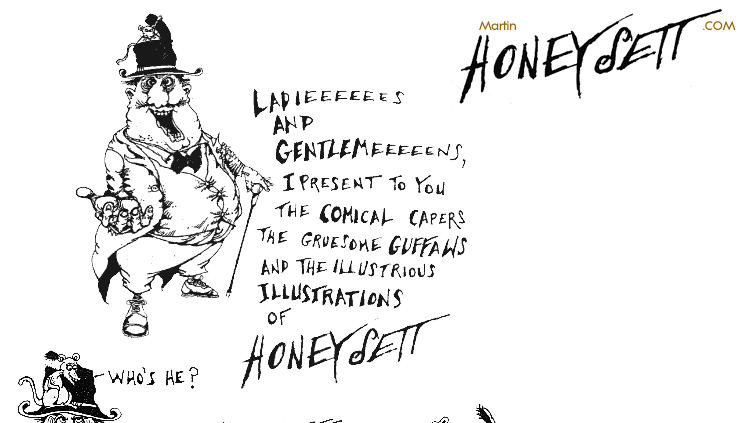 Martin
HONEYSETT
.COM
LADIEEEEEES
AND
GENTLEMEEEEENS,
I PRESENT TO YOU
THE COMICAL CAPERS
THE GRUESOME GUFFAWS
AND THE ILLUSTRIOUS
ILLUSTRATIONS
OF
HONEYSETT
WHO'S HE?